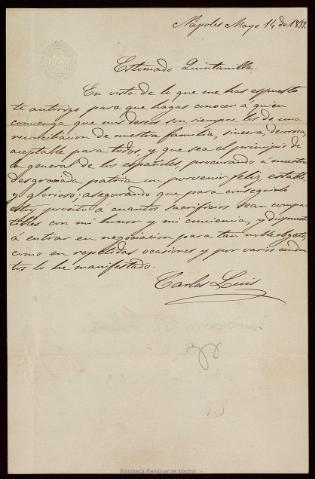 Nápoles Mayo 14 de 18
Estimado Quintanilla.
En vista de lo que me has espuesto
te autorizo para que hagas conocer a quien
convenga que mis deseos son siempre los de una
reconciliacion de nuestra familia, sincera, decorosa,
aceptable para todos y que sea el principio de
la general de los españoles procurando á nuestra
desgraciada patria un porvenir feliz, estable
y glorioso; asegurando que para conseguirlo
estoy pronto á cuantos sacrificios sean compa-
tibles con mi honor y mi conciencia, y dispuesto
á entrar en negociacion para tan noble objeto,
como en repetidas ocasiones y por varios conduc-
tos lo he manifestado.
Carlos Luis
Biblioteca Regional de Madrid